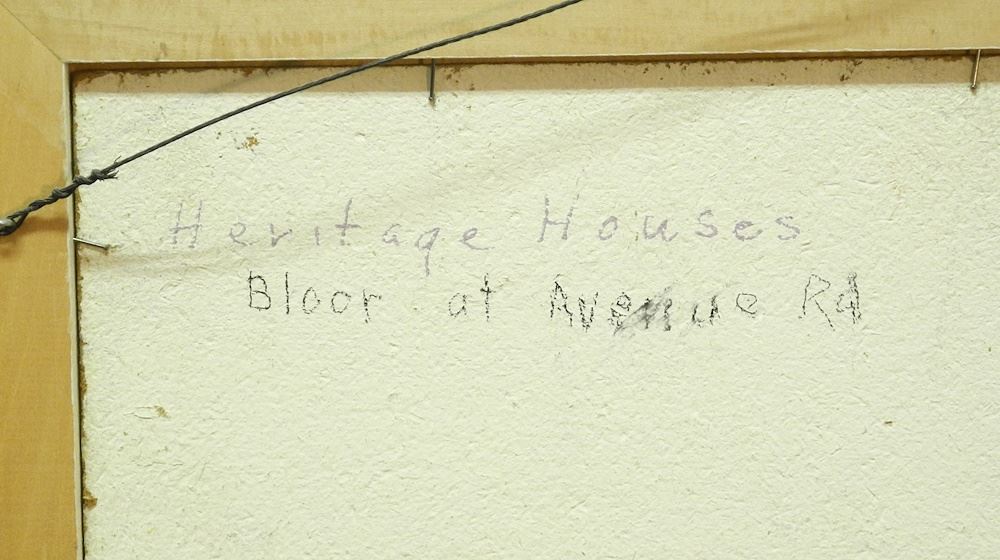 Heritage Houses
Bloor at Avenue Rd